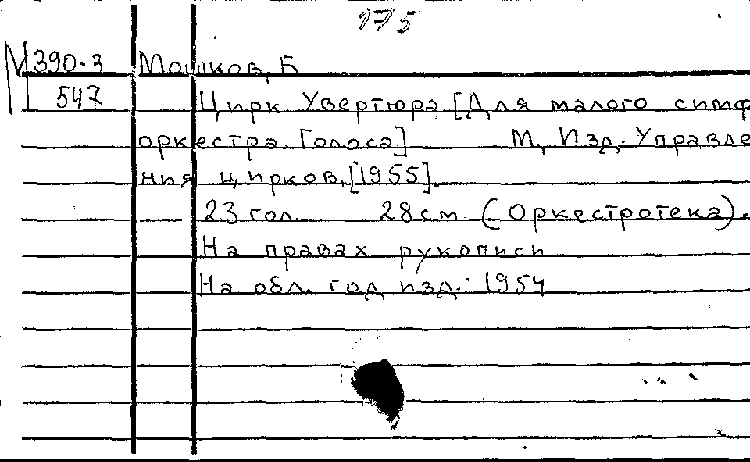 175
М390-3 Мошков, Б
547 Цирк. Увертюра [Для малого симф
оркестра. Голоса] М, Изд. Управле
ния цирков, [1955].
23 гол. 28 см. (Оркестротека).
На правах рукописи
На обл. год изд.: 1954